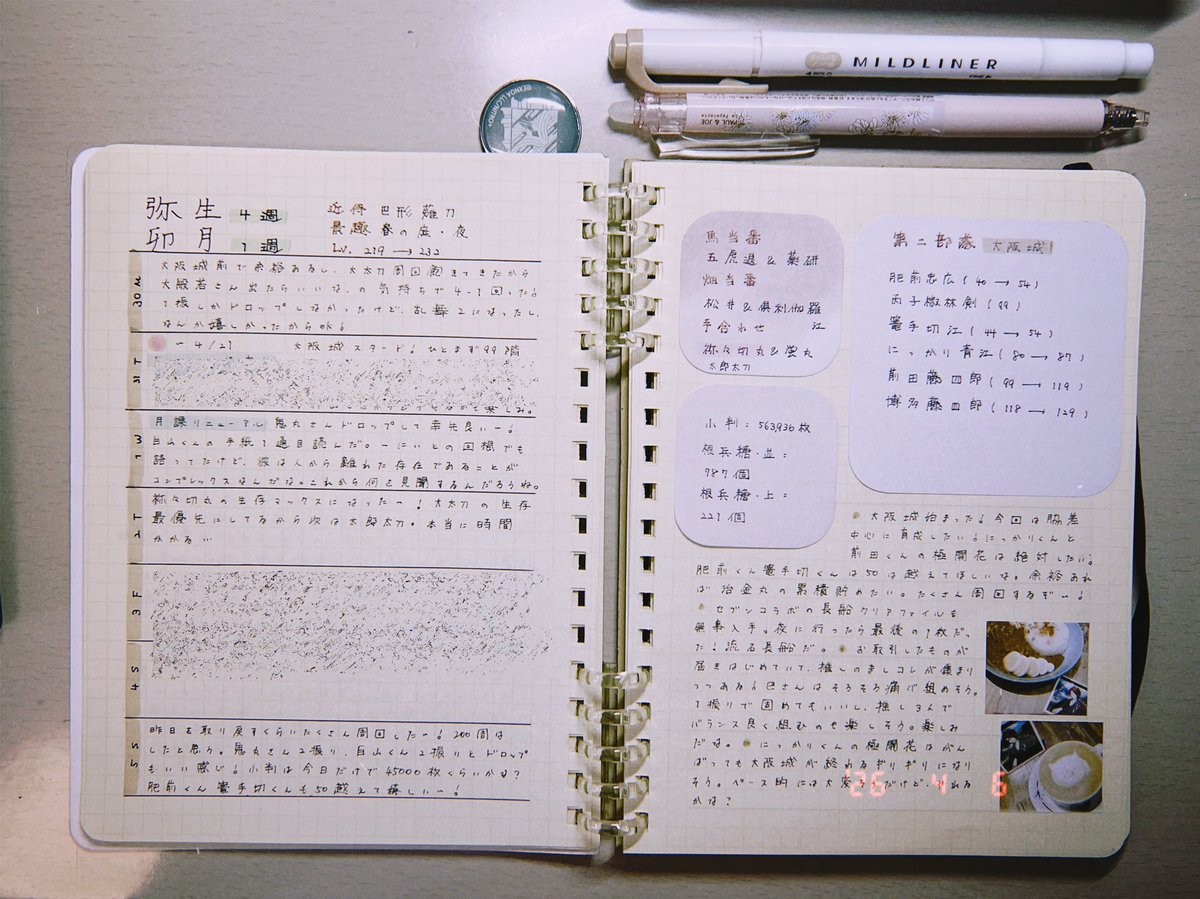 MILDLINER
PAUL & JOE
弥生 4週
卯月 1週
近侍 巴形薙刀
景趣 春の庭・夜
Lv. 219 → 232
30M
大阪城前で余裕あるし、大太刀周回飽きてきたから
大般若さん出たらいいな、の気持ちで4-1回った!
1振しかドロップしなかったけど、乱舞2になったし、
なんか嬉しかったからok!
31T
~4/21 大阪城スタート!ひとまず99階
楽しみ。
1W
月課リニューアル 鬼丸さんドロップして幸先良い~!
白山くんの手紙1通目読んだ。~にいとの回想でも
語ってたけど、彼は人から離れた存在であることが
コンプレックスなんだな。これから何を見聞するんだろうね。
2T
祢々切丸の生存マックスになった~!大太刀の生存
最優先にしてるから次は太郎太刀。本当に時間
かかる…
3F
4S
5S
昨日を取り戻すくらいたくさん周回したい!200周は
したと思う。鬼丸さん2振り、白山くん2振りとドロップ
もいい感じ!小判は今日だけで45000枚くらいかな?
肥前くん篭手切くんも50越えて嬉しい~!
馬当番
五虎退&薬研
畑当番
松井&倶利伽羅
江
手合わせ
祢々切丸&蛍丸
太郎太刀
小判:563,936枚
根兵糖・並:
787個
根兵糖・上:
221個
第二部隊 大阪城
肥前忠広(40→54)
丙子椒林剣(99)
篭手切江(44→54)
にっかり青江(80→87)
前田藤四郎(99→119)
博多藤四郎(118→129)
大阪城始まった!今回は脇差
中心に育成したい!にっかりくんと
前田くんの極開花は絶対したい。
肥前くん篭手切くんは50は越えてほしいな。余裕あれ
ば治金丸の累積貯めたい。たくさん周回するぞい~!
セブンコラボの長船クリアファイルも
無事入手。夜に行ったら最後の1枚だっ
た!流石長船だ。お取引したものが
届きはじめていて、推しのましコレが集まり
つつある!巴さんはそろそろ痛バ組めそう。
1振りで固めてもいいし、推し3人で
バランス良く組むのも楽しそう。楽しみ
だな。にっかりくんの極開花はがん
ばっても大阪城が終わるギリギリになり
そう。ペース的には大変そうだけど、
かな?
26 4 6